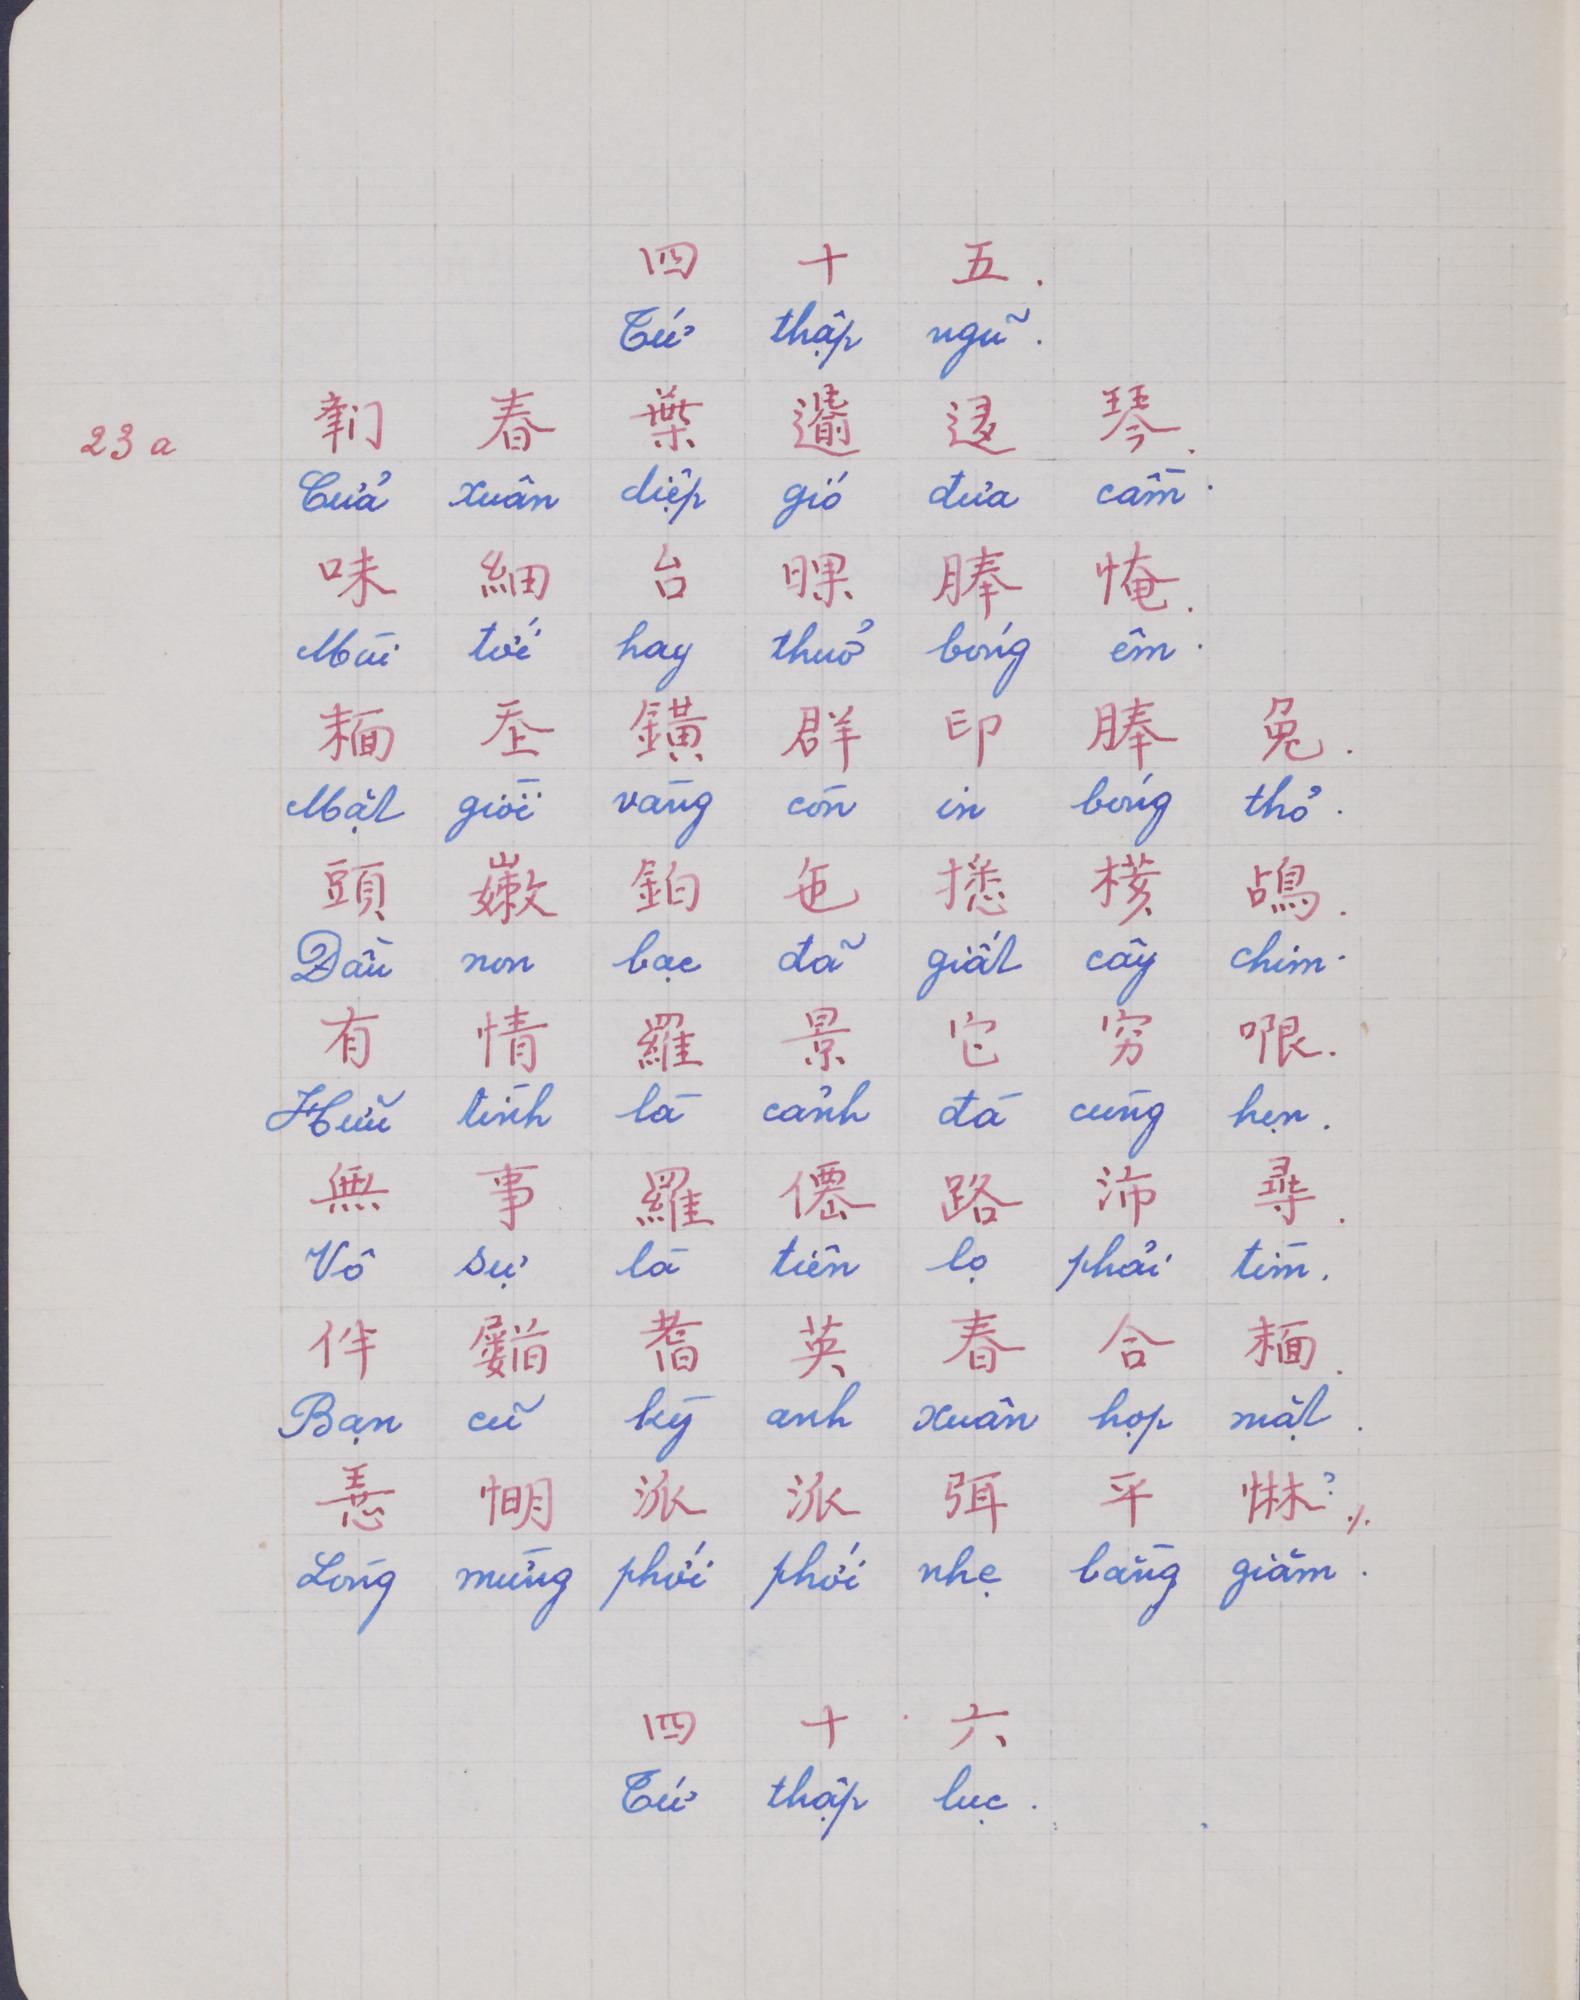 四 十 五.
Tứ thập ngũ.
23a
春 葉 琴.
Cửa xuân diệp gió đưa cầm.
味 細 台 㬈 䏾 㤿.
Mùi tới hay thuở bóng êm.
𩈘 𡗶 鐄 群 印 䏾 兔.
Mặt giời vàng còn in bóng thỏ.
頭 嫩 鉑 㐌 鴣.
Đầu non bạc đã giất cây chim.
有 情 羅 景 它 穷 哏.
Hữu tình là cảnh đà cùng hẹn.
無 事 羅 僊 路 沛 尋.
Vô sự là tiên lọ phải tìm.
伴 𡳰 耆 英 春 合 𩈘.
Bạn cũ kỳ anh xuân họp mặt.
𢚸 𢜠 派 派 弭 平 惏 ? ./.
Lòng mừng phới phới nhẹ bằng giăm.
四 十 六
Tứ thập lục.